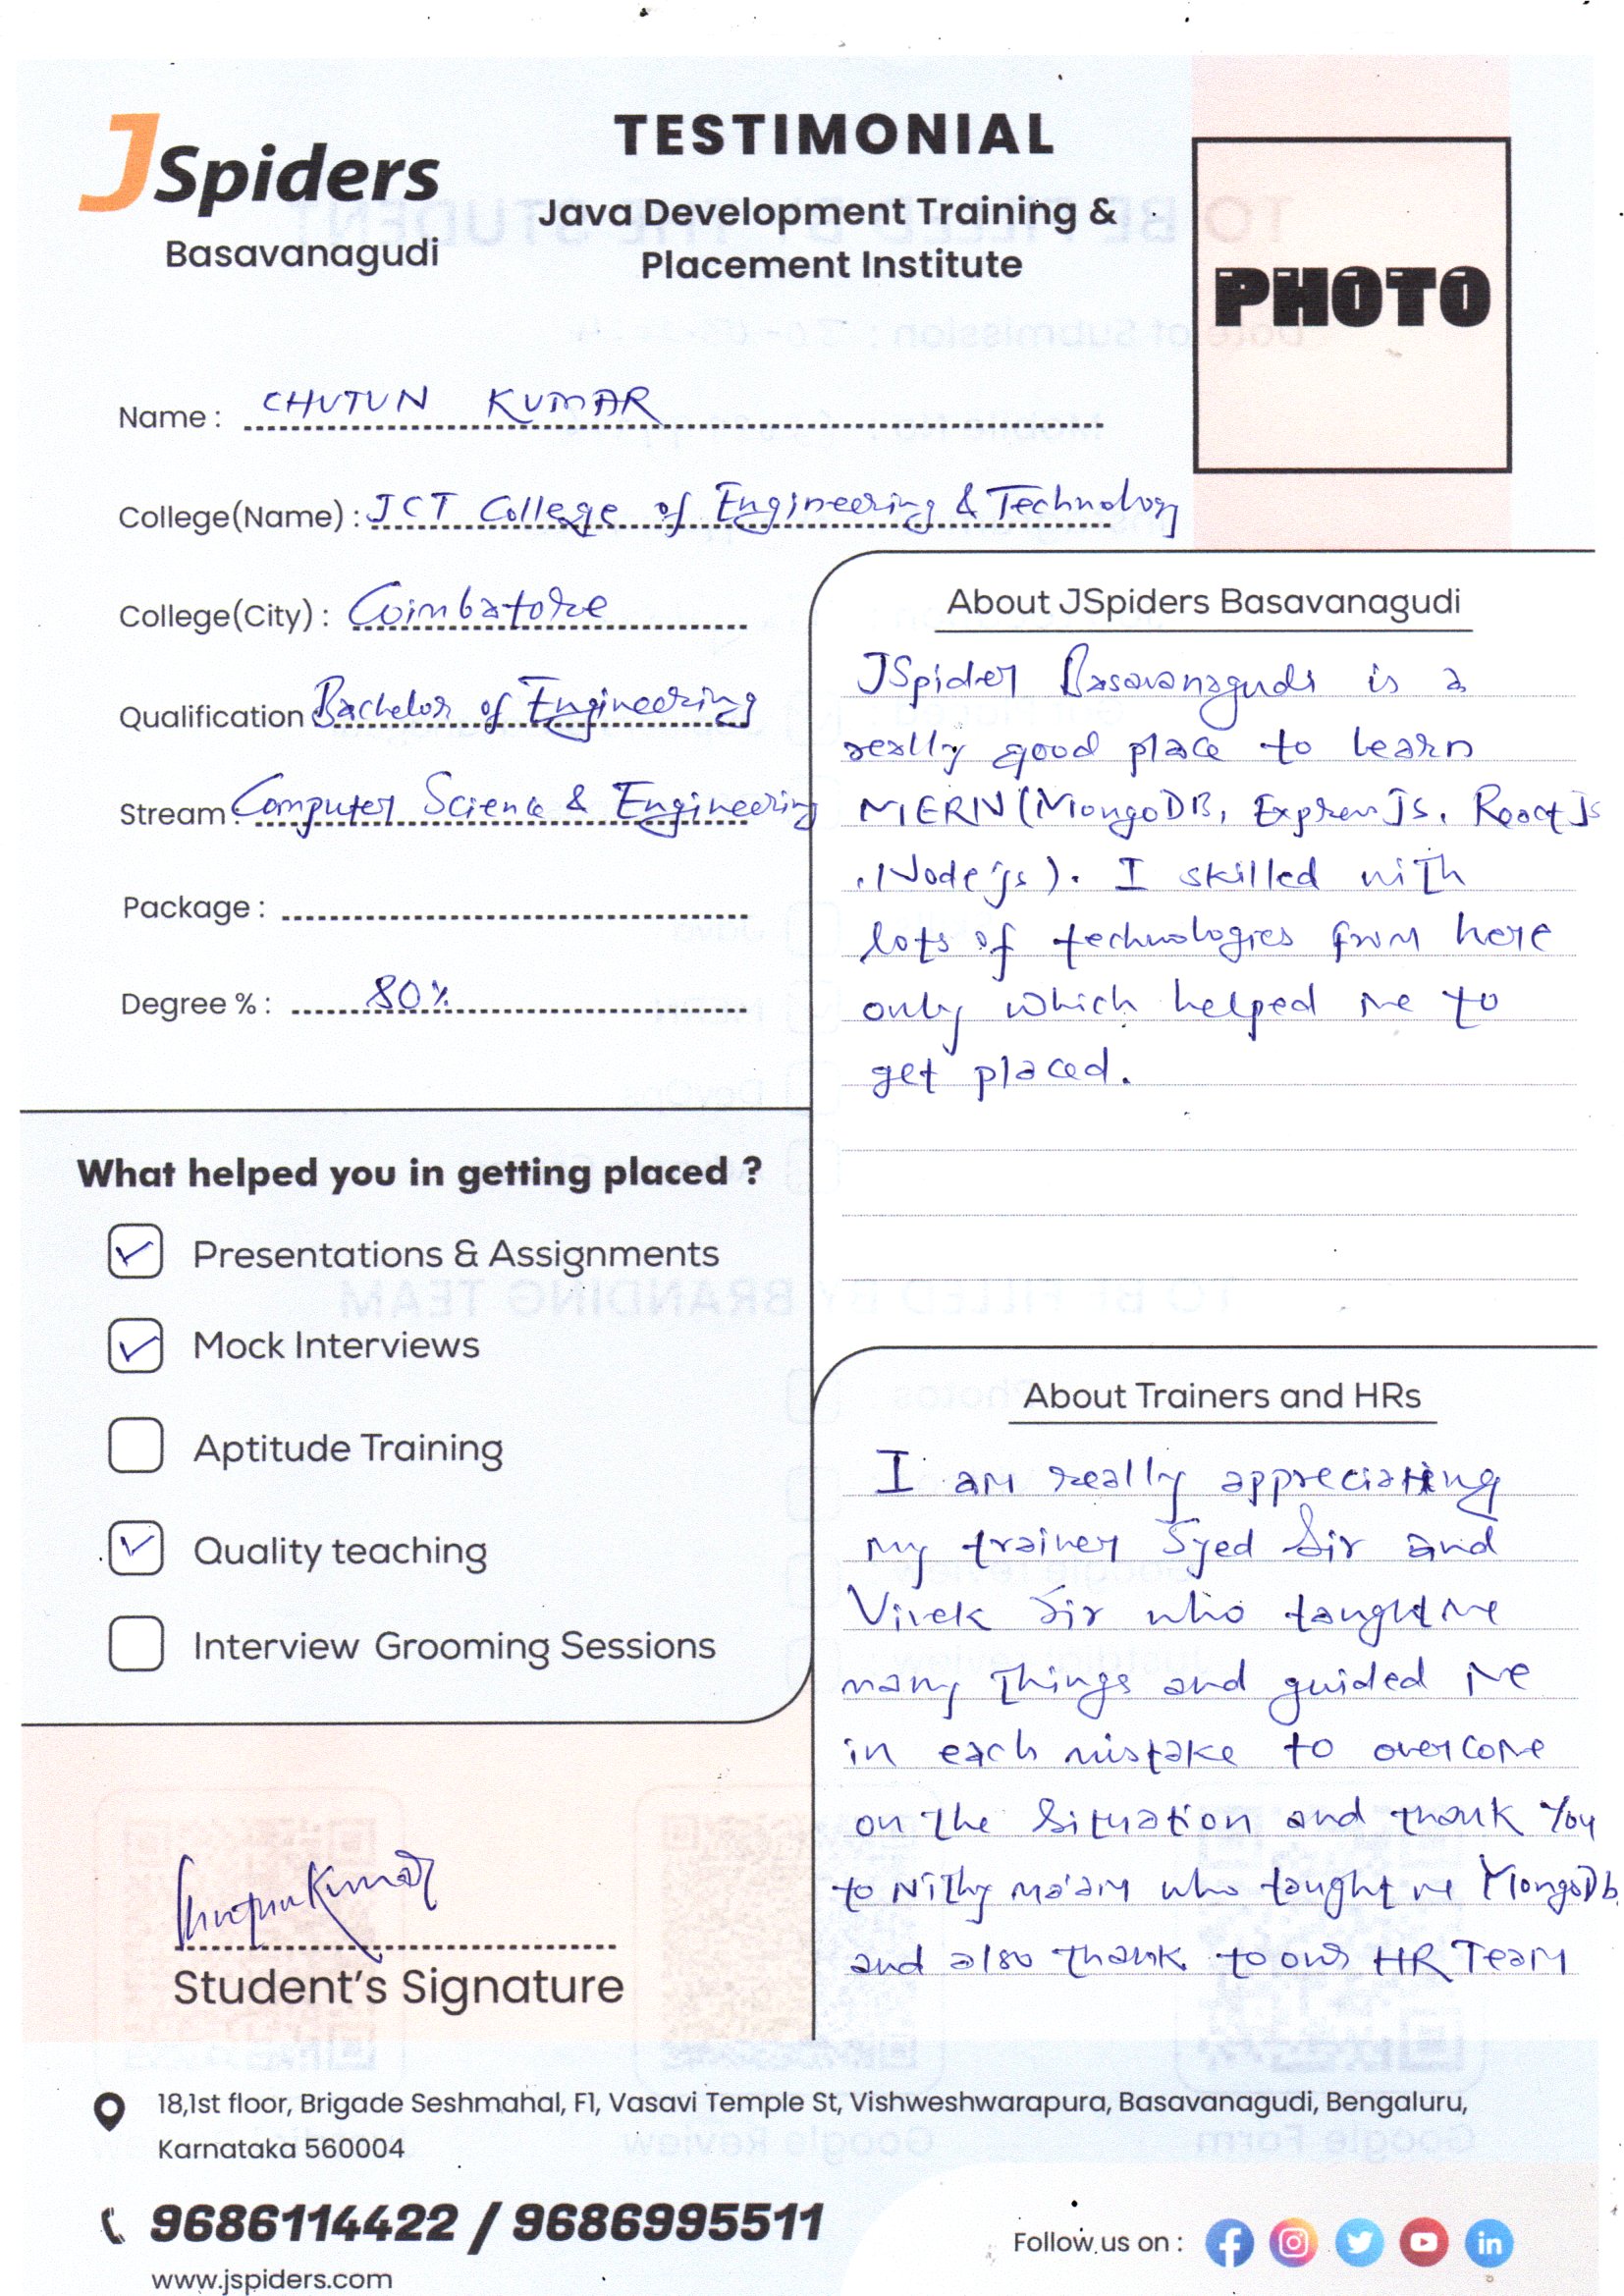 JSpiders
Basavanagudi
TESTIMONIAL
Java Development Training &
Placement Institute
PHOTO
Name : CHUTUN KUMAR
College(Name) : JCT College of Engineering & Technology
College(City) : Coimbatore
Qualification Bachelor of Engineering
Stream : Computer Science & Engineering
Package :
Degree % : 80%
What helped you in getting placed ?
Presentations & Assignments
Mock Interviews
Aptitude Training
Quality teaching
Interview Grooming Sessions
Student's Signature
About JSpiders Basavanagudi
JSpider Basavanagudi is a
really good place to learn
MERN (MongoDB, Express JS, React Js
, Node js). I skilled with
lots of technologies from here
only which helped me to
get placed.
About Trainers and HRs
I am really appreciating
my trainer Syed Sir and
Vivek Sir who taught me
many things and guided me
in each mistake to overcome
on the situation and thank you
to Nithy ma'am who taught me MongoDb
and also thank to our HR Team
18,1st floor, Brigade Seshmahal, F1, Vasavi Temple St, Vishweshwarapura, Basavanagudi, Bengaluru,
Karnataka 560004
9686114422 / 9686995511
www.jspiders.com
Follow us on :